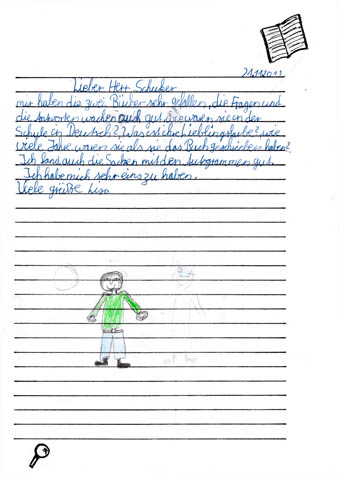 21.11.2011
Lieber Herr Schuker
mir haben die zwei Bücher sehr gefallen, die Fragen und
die Antworten wachen auch gut, wie waren sie in der
Schule in Deutsch? Was ist ihre Lieblingsfarbe? wie
viele Jahre waren sie als sie das Buch geschrieben haben?
Ich fand auch die Sachen mit den Autogrammen gut.
Ich habe mich sehr eins zu haben.
Viele grüße Lisa